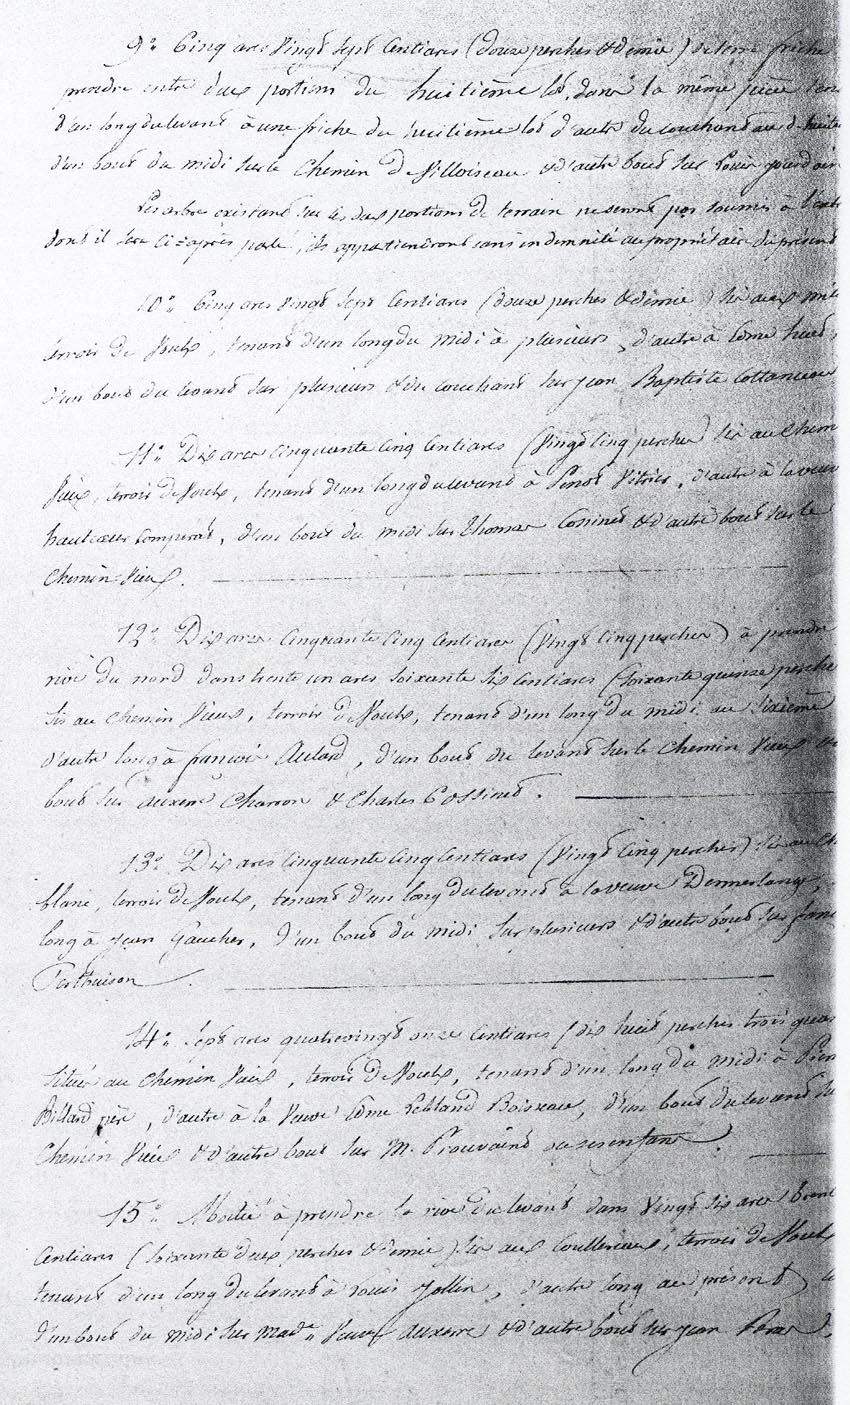 9° Cinq ares Vingt sept Centiares (douze perches & demie) de terre friche
prendre entre deux portions du huitième lot, dans la même pièce
d'un long du levant à une friche du huitième lot d'autre du couchant au
d'un bout du midi sur le Chemin de Villoiseau & d'autre bout sur Louis Jourdain
Les arbres existant sur les deux portions de terrain ne seront pas soumis à
dont il sera ci-après parlé, ils appartiendront sans indemnité au propriétaire du présent
10° Cinq ares Vingt sept Centiares (douze perches & demie) sis aux
terroir de tenant d'un long du midi à plusieurs, d'autre à Côme huet,
d'un bout du levant sur plusieurs & du couchant sur Jean Baptiste Cottanceau
11° Dix ares Cinquante Cinq Centiares (Vingt Cinq perches) sis au Chemin
Vieux, terroir de tenant d'un long du levant à d'autre à la veuve
d'un bout du midi sur Thomas & d'autre bout sur le
Chemin Vieux.
12° Dix ares Cinquante Cinq Centiares (Vingt Cinq perches) à prendre
rive du nord dans trente un ares Soixante Six Centiares (Soixante quinze perches
Sis au Chemin Vieux, terroir de tenant d'un long du midi au Sixième
d'autre long à françois d'un bout du levant sur le Chemin Vieux &
bout sur auxerre Charron & Charles Cossinet.
13° Dix ares Cinquante Cinq Centiares (Vingt Cinq perches) sis au Ch
blanc, terroir de tenant d'un long du levant à la veuve
long à Jean Gaucher, d'un bout du midi sur plusieurs & d'autre bout sur
Perthuison.
14° Sept ares quatrevingt onze Centiares (dix huit perches trois quarts
située au Chemin Vieux, terroir de tenant d'un long du midi à
Billard père, d'autre à la Veuve Côme d'un bout du levant
Chemin Vieux & d'autre bout sur M. Prouvaint ou ses enfants.
15° Moitié à prendre la rive du levant dans Vingt Six ares
Centiares (Soixante deux perches & demie) sis aux terroir de
tenant d'un long du levant à Louis d'autre long au présent
d'un bout du midi sur Made Veuve auxerre & d'autre bout sur Jean